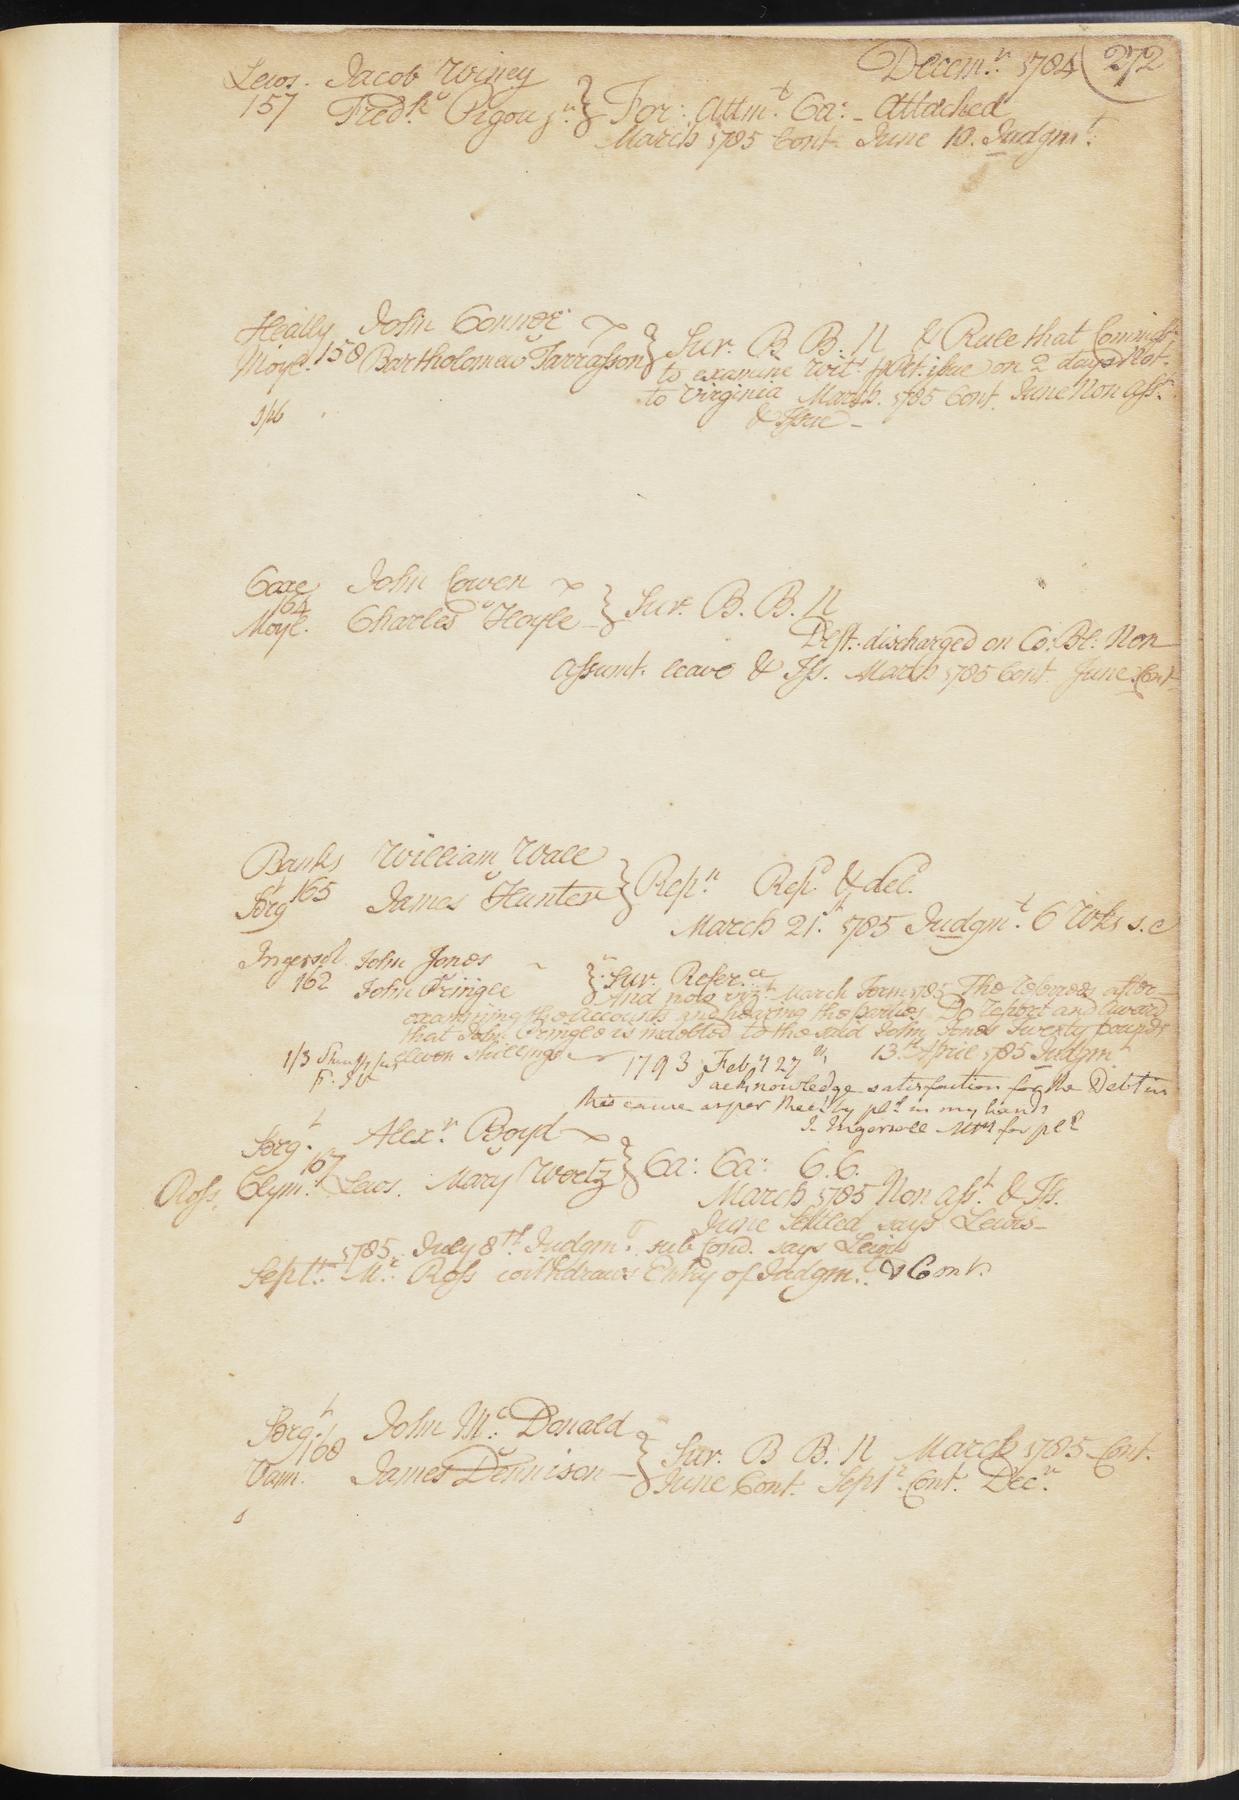 Decem.r 1784 272
Lewis. Jacob Winey
157 Fred.k Pigou j.r } For: Attm.t Ca: - Attached
March 1785 Cont. June 10. Judgm.t
Heally John Connor
Moyl. 158 Bartholomew Tarrasson } Sur. B B. N & Rule that
to examine Wit.s issue on 2 days Not.
to Virginia March. 1785 Cont. June Non Ass.t
& Issue -
Coxe John Cowen
164
Moyl. Charles Hoyle } Sur. B. B. N
Deft. discharged on Co: Bl: Non
Assumt. leave & Iss. March 1785 Cont. June. Cont
Banks William Wall
Serg.t 165 James Hunter } Rep.n Rep.d & del.d
March 21.st 1785 Judgm.t 6 Wks s. e
Ingersol John Jones
162 John Pringle } Sur. Refer.ce
And now viz.t March Term 1785 The Referees after
examining the Accounts and hearing the parties Do report and Award
that John Pringle is indebted to the said John Jones Twenty pounds
eleven shillings 13.th April 1785 Judgm.t
1/3
1793 Feb.y 27.th
I acknowledge satisfaction for the Debt in
this cause as per Rec.t by pl.ff in my hands
J. Ingersoll Att.y for pl.ff
Serg.t Alex.r Boyd
167
Ross, Clym.r Lewis. Mary Wertz } Ca: Ca: C.C.
March 1785 Non Ass.t & Iss.
June Settled says Lewis
1785 July 8.th Judgm.t sub Cond. says Lewis
Sept.r M.r Ross withdraws Entry of Judgm.t & Cont.
Serg.t John Mc Donald
168
Vann. James Dennison } Sur. B B. N March 1785 Cont.
June Cont. Sept.r Cont. Dec.r